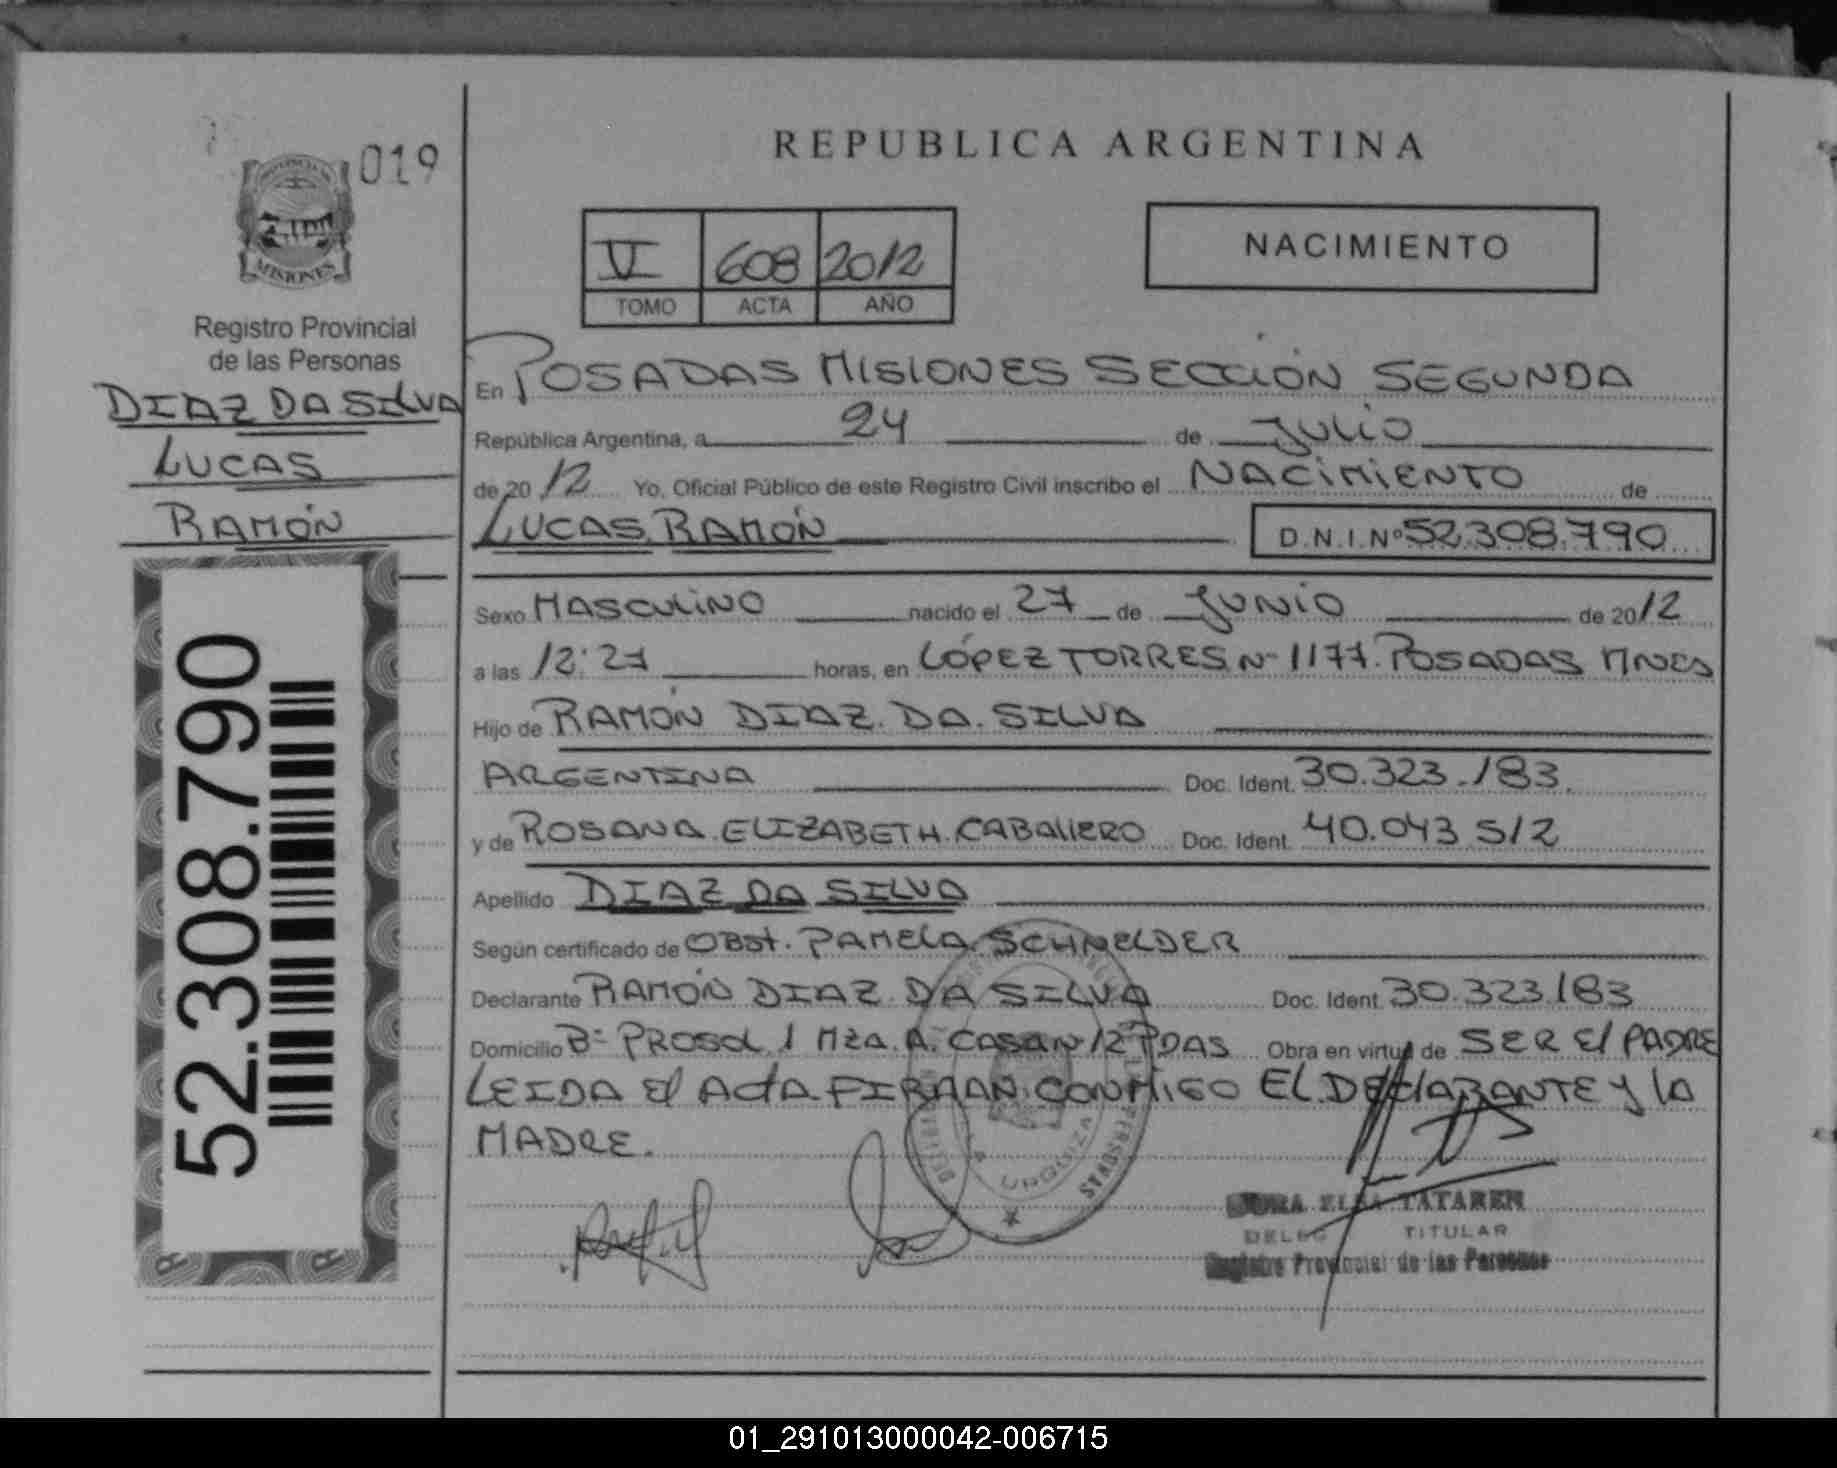 019
PROVINCIA DE
MISIONES
Registro Provincial
de las Personas
DIAZ DA SILVA
LUCAS
RAMÓN
52.308.790
REPUBLICA ARGENTINA
V 608 2012
TOMO ACTA AÑO
NACIMIENTO
En POSADAS MISIONES SECCIÓN SEGUNDA
República Argentina, a 24 de JULIO
de 2012 Yo, Oficial Público de este Registro Civil inscribo el NACIMIENTO de
LUCAS RAMÓN D.N.I.Nº 52.308.790
Sexo MASCULINO nacido el 27 de JUNIO de 2012
a las 12:27 horas, en LÓPEZ TORRES Nº 1177. POSADAS MNES
Hijo de RAMÓN DIAZ DA SILVA
ARGENTINA Doc. Ident. 30.323.183
y de ROSANA ELIZABETH CABALLERO Doc. Ident. 40.043.512
Apellido DIAZ DA SILVA
Según certificado de OBST. PAMELA SCHNEIDER
Declarante RAMÓN DIAZ DA SILVA Doc. Ident. 30.323.183
Domicilio Bº PROSOL 1 MZA. A. CASA Nº 12 PDAS Obra en virtud de SER El PADRE
LEIDA El ACTA FIRMAN CONMIGO EL DECLARANTE y lA
MADRE.
ELSA TATAREN
TITULAR
Registro Provincial de las Personas
01_291013000042-006715